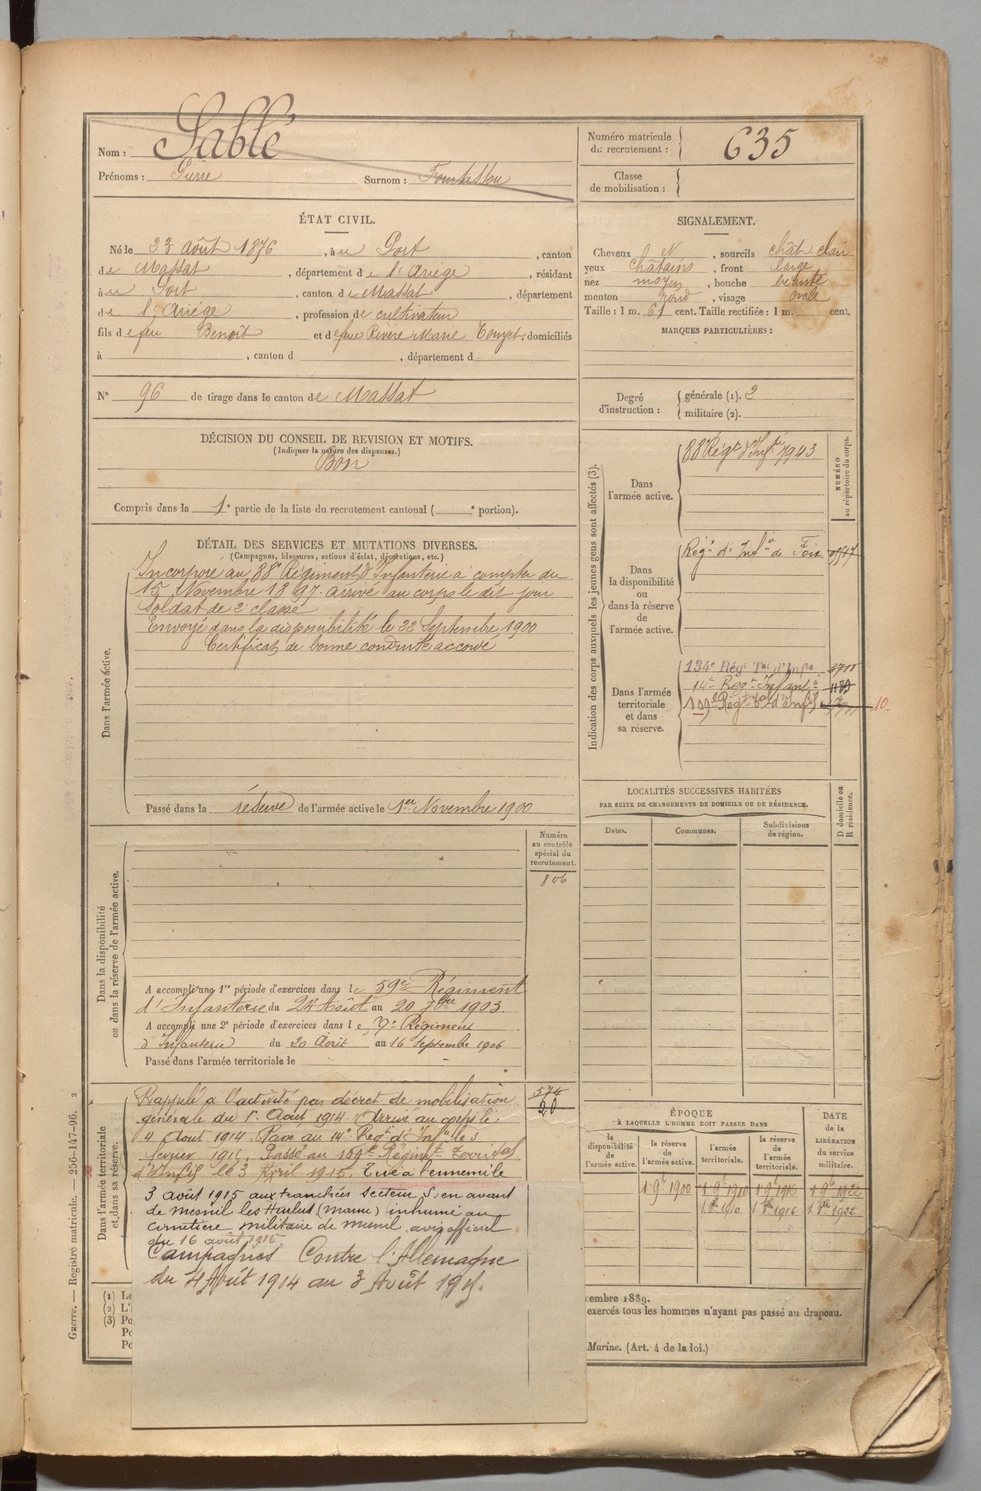 Nom : Sablé
Prénoms : Pierre Surnom :
Numéro matricule du recrutement : 635
Classe de mobilisation :
ÉTAT CIVIL.
Né le 23 août 1876, à u Port, canton
de Massat, département de l'Ariège, résidant
à u Port, canton de Massat, département
de l'Ariège, profession de cultivateur
fils de feu Benoît et de feue Rivère Marie, domiciliés
à , canton d , département d
SIGNALEMENT.
Cheveux N, sourcils chât clair
yeux châtains, front large
nez moyen, bouche
menton rond, visage ovale
Taille : 1 m. 61 cent. Taille rectifiée : 1 m. cent.
MARQUES PARTICULIÈRES :
N° 96 de tirage dans le canton de Massat
Degré d'instruction : générale (1). 2
militaire (2).
DÉCISION DU CONSEIL DE REVISION ET MOTIFS.
(Indiquer la nature des dispenses.)
Bon
Compris dans la 1e partie de la liste du recrutement cantonal ( e portion).
DÉTAIL DES SERVICES ET MUTATIONS DIVERSES.
(Campagnes, blessures, actions d'éclat, décorations, etc.)
Dans l'armée active.
Incorporé au 88e Régiment d'Infanterie à compter du
15 Novembre 1897. arrivé au corps le dit jour
Soldat de 2e classe
Envoyé dans la disponibilité le 22 Septembre 1900
Certificat de bonne conduite accordé
Passé dans la réserve de l'armée active le 1er Novembre 1900
Indication des corps auxquels les jeunes gens sont affectés (3).
NUMÉRO au répertoire du corps.
Dans l'armée active.
88e Régt d'Infie 7943
Dans la disponibilité ou dans la réserve de l'armée active.
Regt d'Infie de Foix
Dans l'armée territoriale et dans sa réserve.
134e Régt Tal d'Infie
14e Regt Infantie
10
LOCALITÉS SUCCESSIVES HABITÉES
PAR SUITE DE CHANGEMENTS DE DOMICILE OU DE RÉSIDENCE.
Dates. Communes. Subdivisions de région. D domicile ou R résidence.
Numéro au contrôle spécial du recrutement.
806
Dans la disponibilité ou dans la réserve de l'armée active.
A accompli une 1re période d'exercices dans le 59e Régiment
d'Infanterie du 24 Août au 20 7bre 1903.
A accompli une 2e période d'exercices dans le Régiment
d'Infanterie du 20 Août au 16 Septembre 1906
Passé dans l'armée territoriale le
Dans l'armée territoriale et dans sa réserve.
574
20
Rappelé à l'activité par décret de mobilisation
générale du 1er Août 1914. Arrivé au corps le
4 Août 1914. Passé au 14e Reg. d'Infie le 3
février 1915. Passé au Régimt Territal
d'Infie le 3 Avril 1915. Tué à l'ennemi le
3 août 1915 aux tranchées secteur S, en avant
de mesnil les Hurlus (marne) inhumé au
cimetière militaire de mesnil, avis officiel
du 16 août 1915
Campagnes Contre l'Allemagne
du 4 Août 1914 au 3 Août 1915.
ÉPOQUE
À LAQUELLE L'HOMME DOIT PASSER DANS
la disponibilité de l'armée active. la réserve de l'armée active. l'armée territoriale. la réserve de l'armée territoriale.
DATE de la LIBÉRATION du service militaire.
1 9e 1900 1 9e 1910 1 9e 1916 1 9e 1922
1910 1916 1922
(1) Le
(2) L'
(3) Po
Po
Po
cembre 1889.
exercés tous les hommes n'ayant pas passé au drapeau.
Marine. (Art. 4 de la loi.)
Guerre. — Registre matricule. — 256-147-96. 2